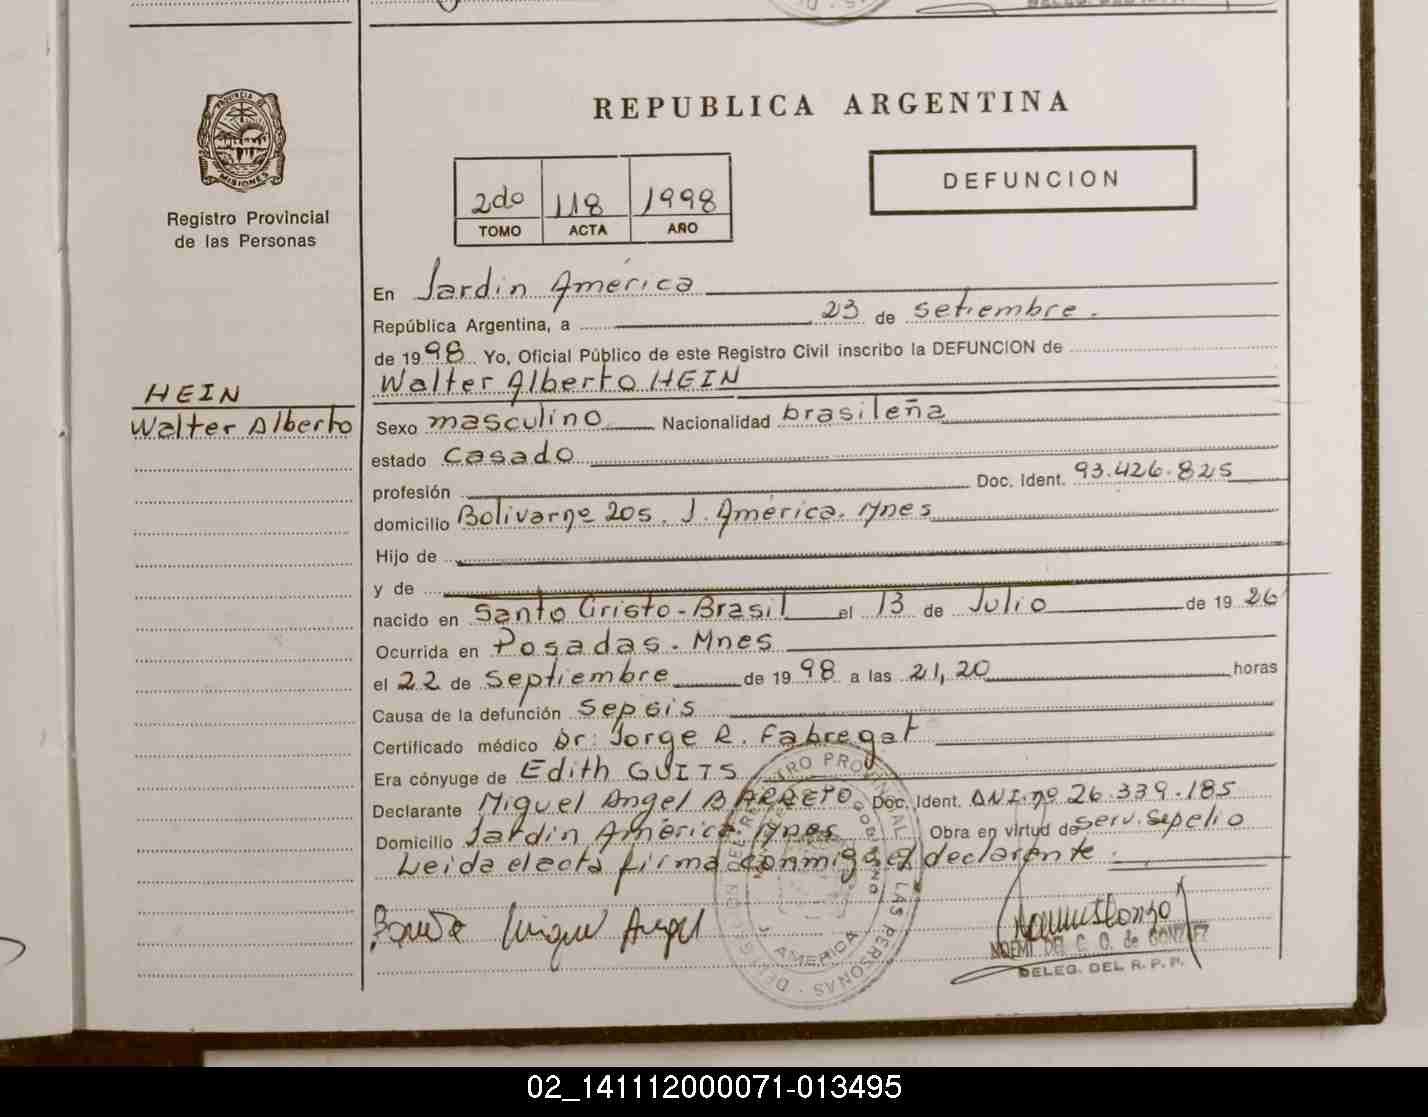 PROVINCIA DE
MISIONES
Registro Provincial
de las Personas
HEIN
Walter Alberto
REPUBLICA ARGENTINA
2do 118 1998
TOMO ACTA AÑO
DEFUNCION
En Jardin América
República Argentina, a 23 de setiembre.
de 1998 Yo, Oficial Público de este Registro Civil inscribo la DEFUNCION de
Walter Alberto HEIN
Sexo masculino Nacionalidad brasileña
estado casado
profesión Doc. Ident. 93.426.825
domicilio Bolivar nº 205. J. América. Mnes
Hijo de
y de
nacido en Santo Cristo-Brasil el 13 de Julio de 1926
Ocurrida en Posadas. Mnes
el 22 de septiembre de 1998 a las 21,20 horas
Causa de la defunción Sepsis
Certificado médico Dr: Jorge R. Fabregat
Era cónyuge de Edith GUITS
Declarante Miguel Angel BARRETO. Doc. Ident. DNI.nº 26.339.185
Domicilio Jardin América. Mnes Obra en virtud de serv. Sepelio
Leida el acta firma conmigo el declarante.
Miguel Angel
NOEMI DEL C. O. de GONZALEZ
DELEG. DEL R. P. P.
DELEGACION DEL REGISTRO PROVINCIAL DE LAS PERSONAS
J. AMERICA
02_141112000071-013495